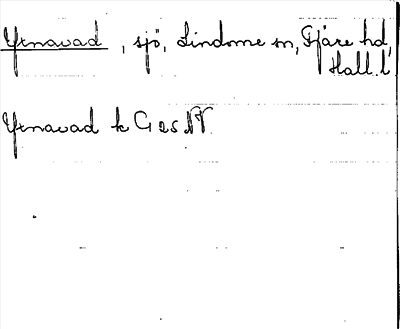 Yrnavad, sjö, Lindome sn, Fjäre hd,
Hall. l.
Yrnavad k G 25 NV